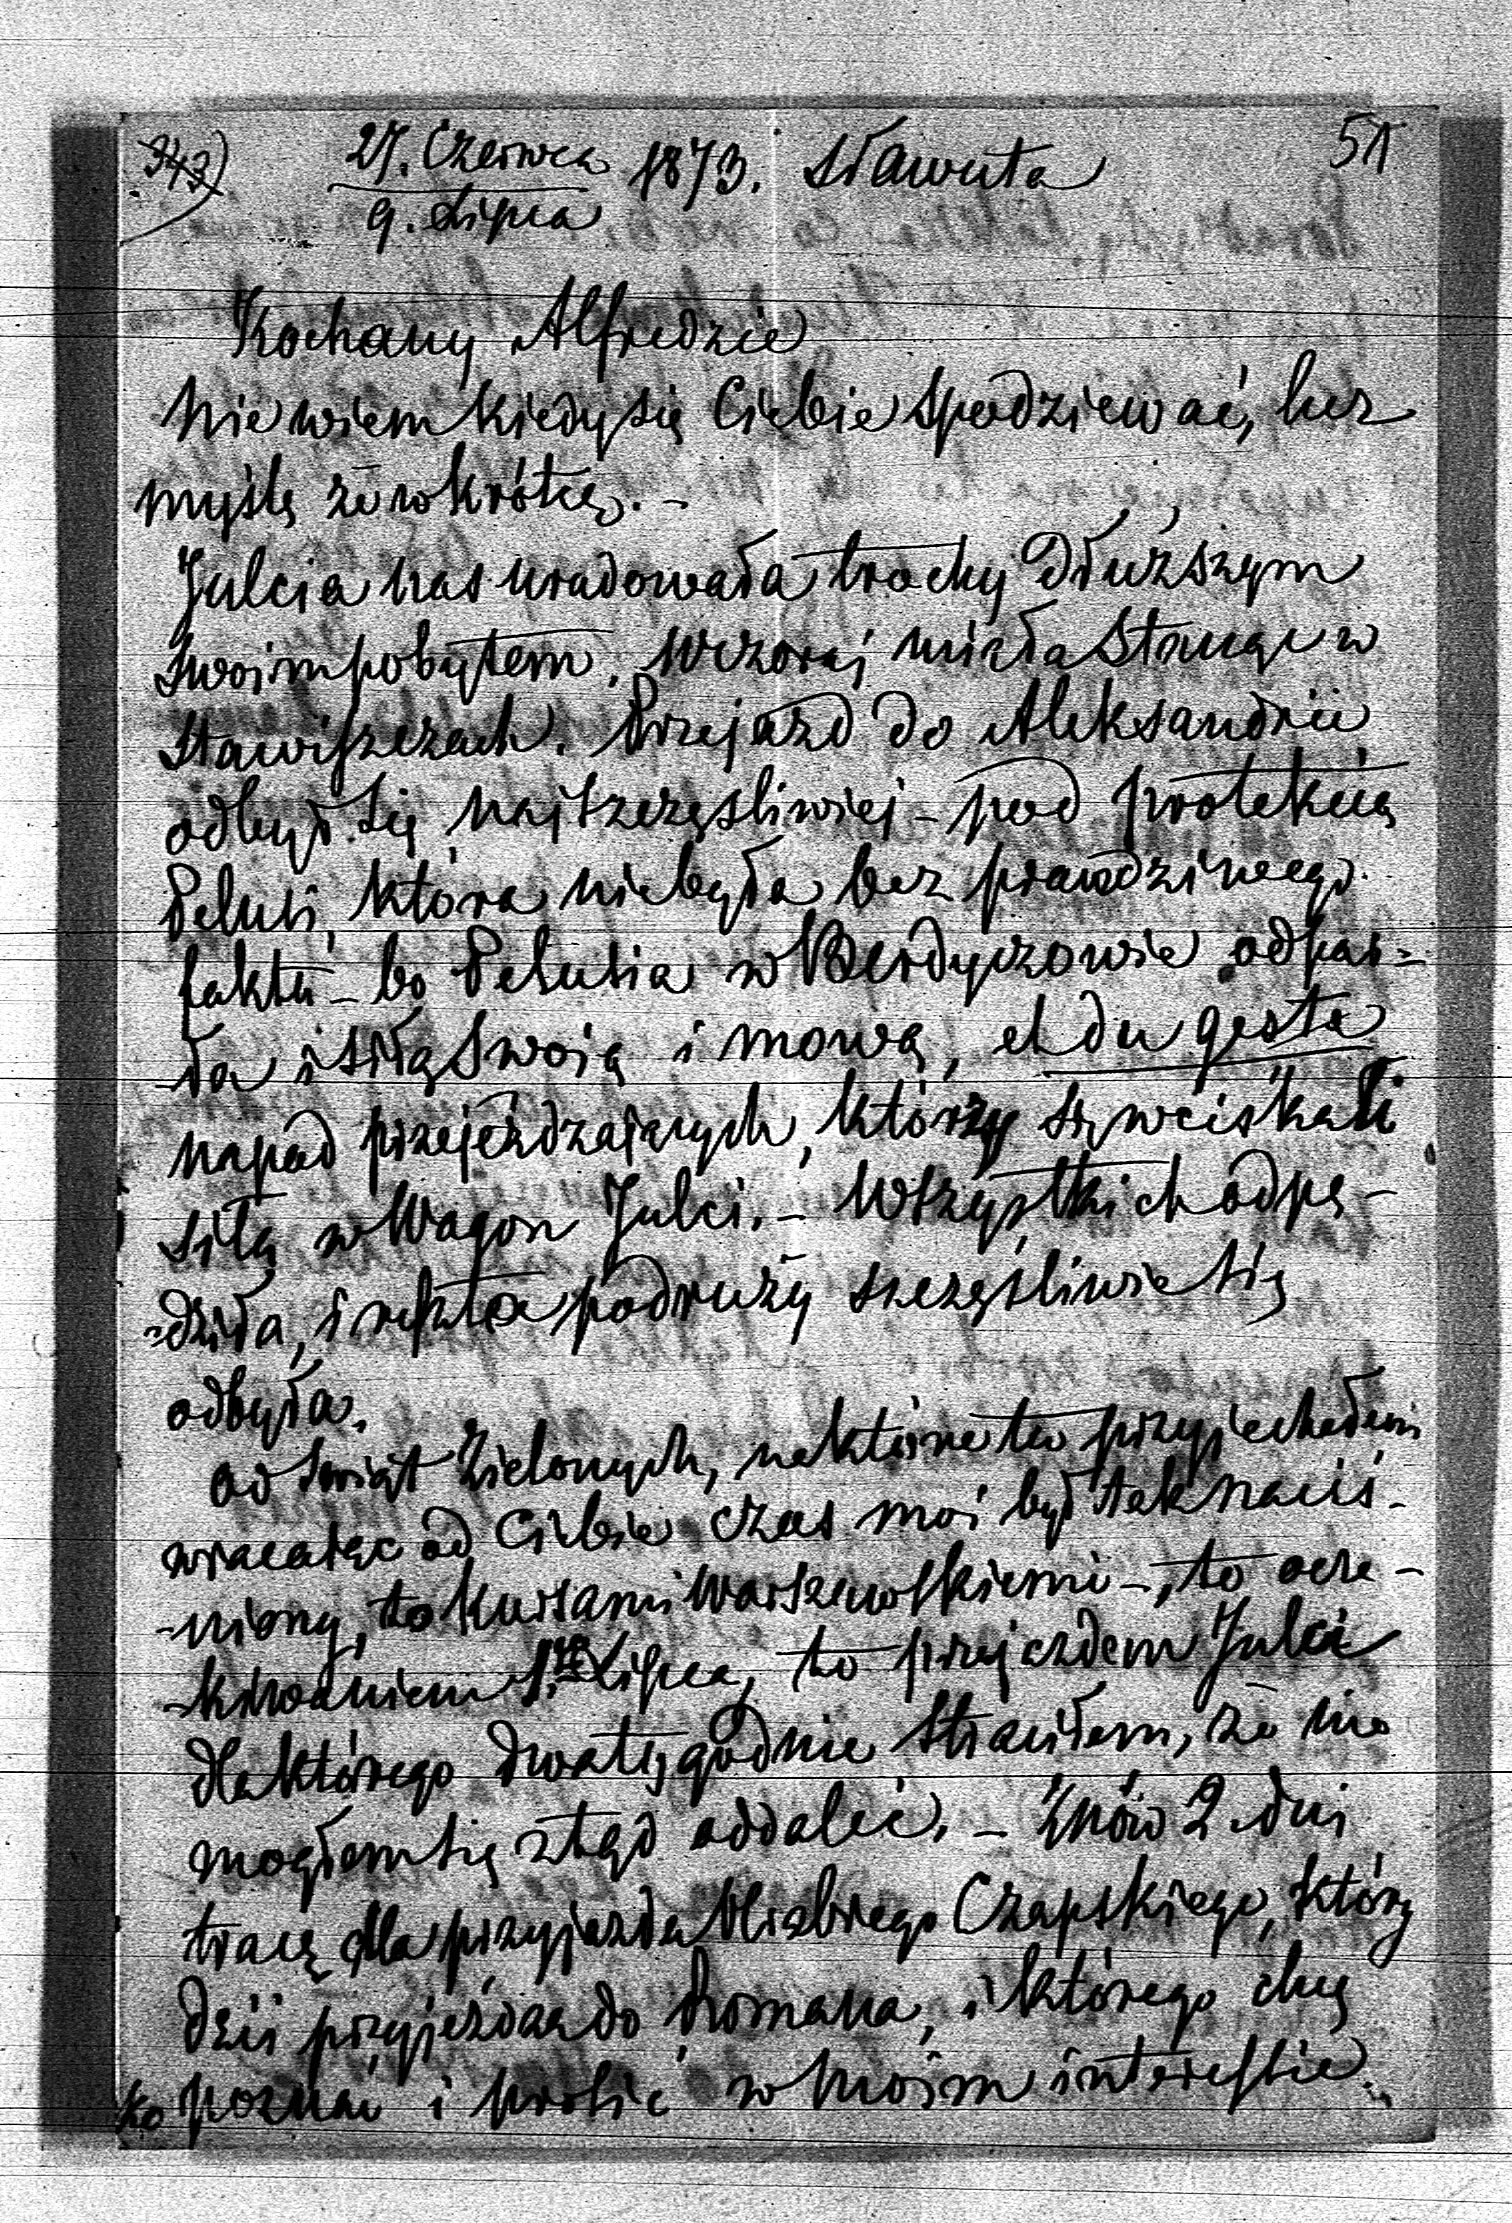 343) 27. Czerwca 1873. Sławuta 51
9. Lipca
Kochany Alfredzie
Nie wiem kiedy się Ciebie spodziewać, lecz
myślę że wkrótce. -
Julcia nas uradowała trochę dłuższym
swoim pobytem, wczoraj miała stanąć w
Stawiszczach. Przejazd do Aleksandrii
odbył się najszczęśliwiej - pod protekcią
Pelusi, która niebyła bez prawdziwego
faktu - bo Pelusia w Berdyczowie odpar-
-ła i siłą swoją i mową, et du geste
napad przejeżdzających, którzy się wciskali
siłą w Wagon Julci. - Wszystkich odpę-
-dziła, i reszta podruży szczęśliwie się
odbyła.
Od Świąt Zielonych, na które tu przyjechałem
wracając od Ciebie czas mój był tak naciś-
-niony, to kursami Warszawskiemi -, to ocze-
-kiwaniem 1.go Lipca, to przejazdem Julci
dla którego dwa tygodnie straciłem, że nie
mogłem się ztąd oddalić. - Znów 2 dni
tracę dla przyjazdu Hrabiego Czapskiego, który
dziś przyjeżdża do Romana, i którego chcę
poznać i prosić w moim interessie.